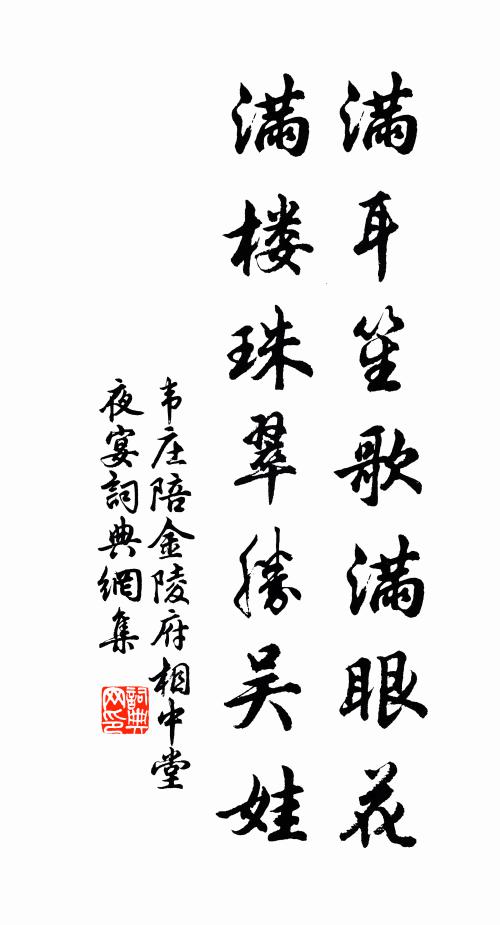 满耳笙歌满眼花
满楼珠翠勝吴娃
韦庄陪金陵府相中堂
夜宴詞典網集
詞典网印